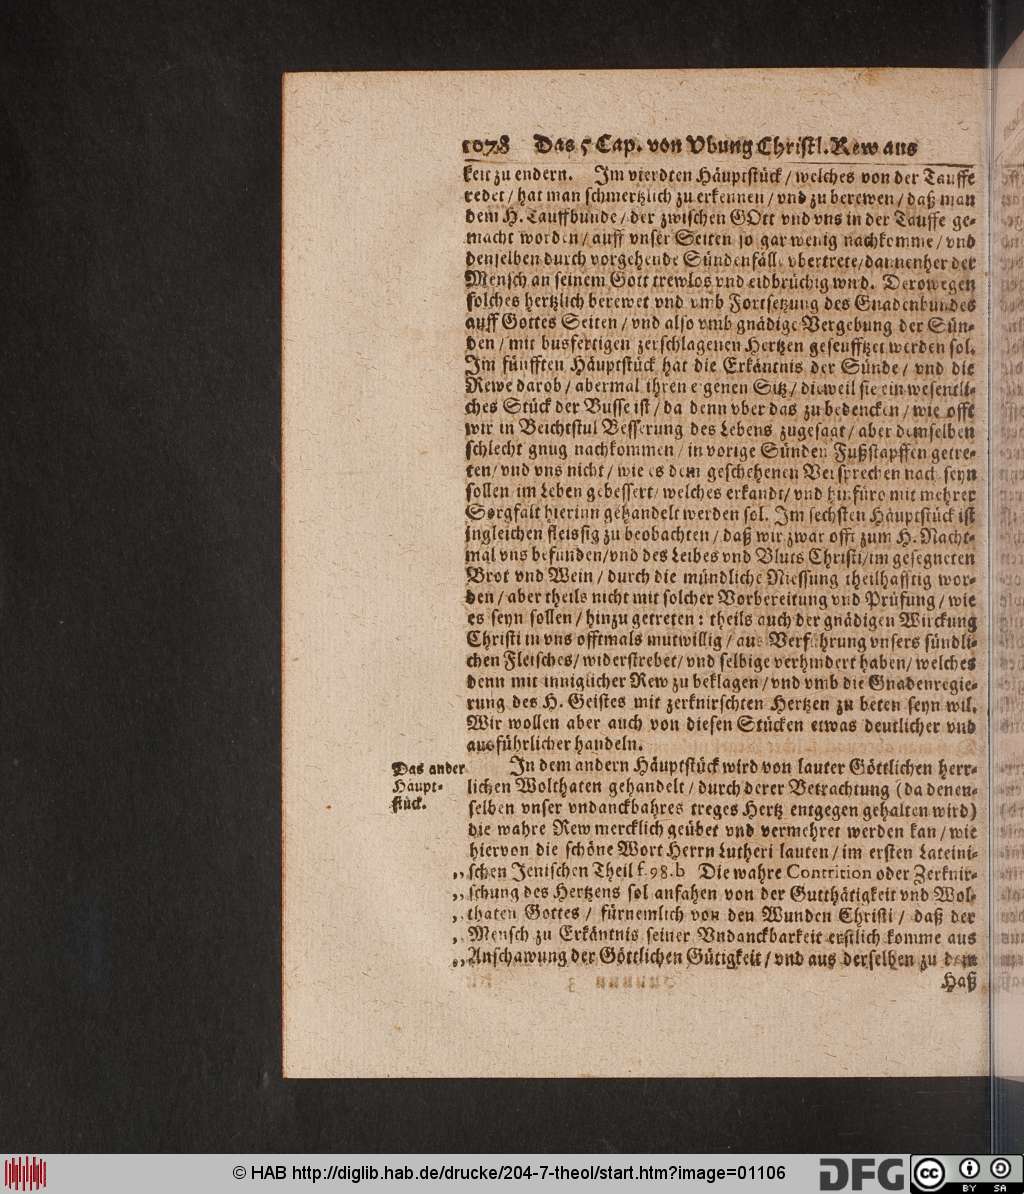 1078 Das 5 Cap. von Vbung Christl. Rew aus
keit zu endern. Im vierdten Häuptstück / welches von der Tauffe
redet / hat man schmertzlich zu erkennen / vnd zu berewen / daß man
dem H. Tauffbunde / der zwischen GOtt vnd vns in der Tauffe ge-
macht worden / auff vnser Seiten so gar wenig nachkomme / vnd
denselben durch vorgehende Sündenfälle vbertrete / dannenher der
Mensch an seinem Gott trewlos vnd eidbrüchig wird. Derowegen
solches hertzlich berewet vnd vmb Fortsetzung des Gnadenbundes
auff Gottes Seiten / vnd also vmb gnädige Vergebung der Sün-
den / mit busfertigen zerschlagenen Hertzen geseufftzet werden sol.
Im fünfften Häuptstück hat die Erkäntnis der Sünde / vnd die
Rewe darob / abermal ihren eigenen Sitz / dieweil sie ein wesentli-
ches Stück der Busse ist / da denn vber das zu bedencken / wie offt
wir in Beichtstul Besserung des Lebens zugesagt / aber demselben
schlecht gnug nachkommen / in vorige Sünden Fußstapffen getre-
ten / vnd vns nicht / wie es dem geschehenen Versprechen nach seyn
sollen im Leben gebessert / welches erkandt / vnd hinfüro mit mehrer
Sorgfalt hierinn gehandelt werden sol. Im sechsten Häuptstück ist
ingleichen fleissig zu beobachten / daß wir zwar offt zum H. Nacht-
mal vns befunden / vnd des Leibes vnd Bluts Christi / im gesegneten
Brot vnd Wein / durch die mündliche Niessung theilhafftig wor-
den / aber theils nicht mit solcher Vorbereitung vnd Prüfung / wie
es seyn sollen / hinzu getreten : theils auch der gnädigen Wirckung
Christi in vns offtmals mutwillig / aus Verführung vnsers sündli-
chen Fleisches / widerstrebet / vnd selbige verhindert haben / welches
denn mit inniglicher Rew zu beklagen / vnd vmb die Gnadenregie-
rung des H. Geistes mit zerknirschten Hertzen zu beten seyn wil.
Wir wollen aber auch von diesen Stücken etwas deutlicher vnd
ausführlicher handeln.
Das ander
Häupt-
stück.
In dem andern Häuptstück wird von lauter Göttlichen herr-
lichen Wolthaten gehandelt / durch derer Betrachtung (da denen-
selben vnser vndanckbahres treges Hertz entgegen gehalten wird)
die wahre Rew mercklich geübet vnd vermehret werden kan / wie
hiervon die schöne Wort Herrn Lutheri lauten / im ersten Lateini-
„ schen Jenischen Theil f. 98. b Die wahre Contrition oder Zerknir-
„ schung des Hertzens sol anfahen von der Gutthätigkeit vnd Wol-
„ thaten Gottes / fürnemlich von den Wunden Christi / daß der
„ Mensch zu Erkäntnis seiner Vndanckbarkeit erstlich komme aus
„ Anschawung der Göttlichen Gütigkeit / vnd aus derselben zu dem
Haß
© HAB http://diglib.hab.de/drucke/204-7-theol/start.htm?image=01106
DFG
cc BY SA